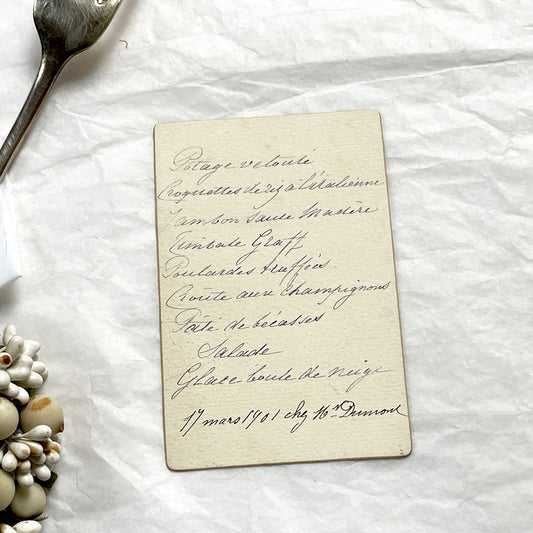 Potage velouté
Croquettes de riz à l'italienne
Jambon sauce Madère
Timbale Graff
Poulardes truffées
Croûte aux champignons
Pâté de bécasses
Salade
Glace boule de neige
17 mars 1901 chez Mr Dumont